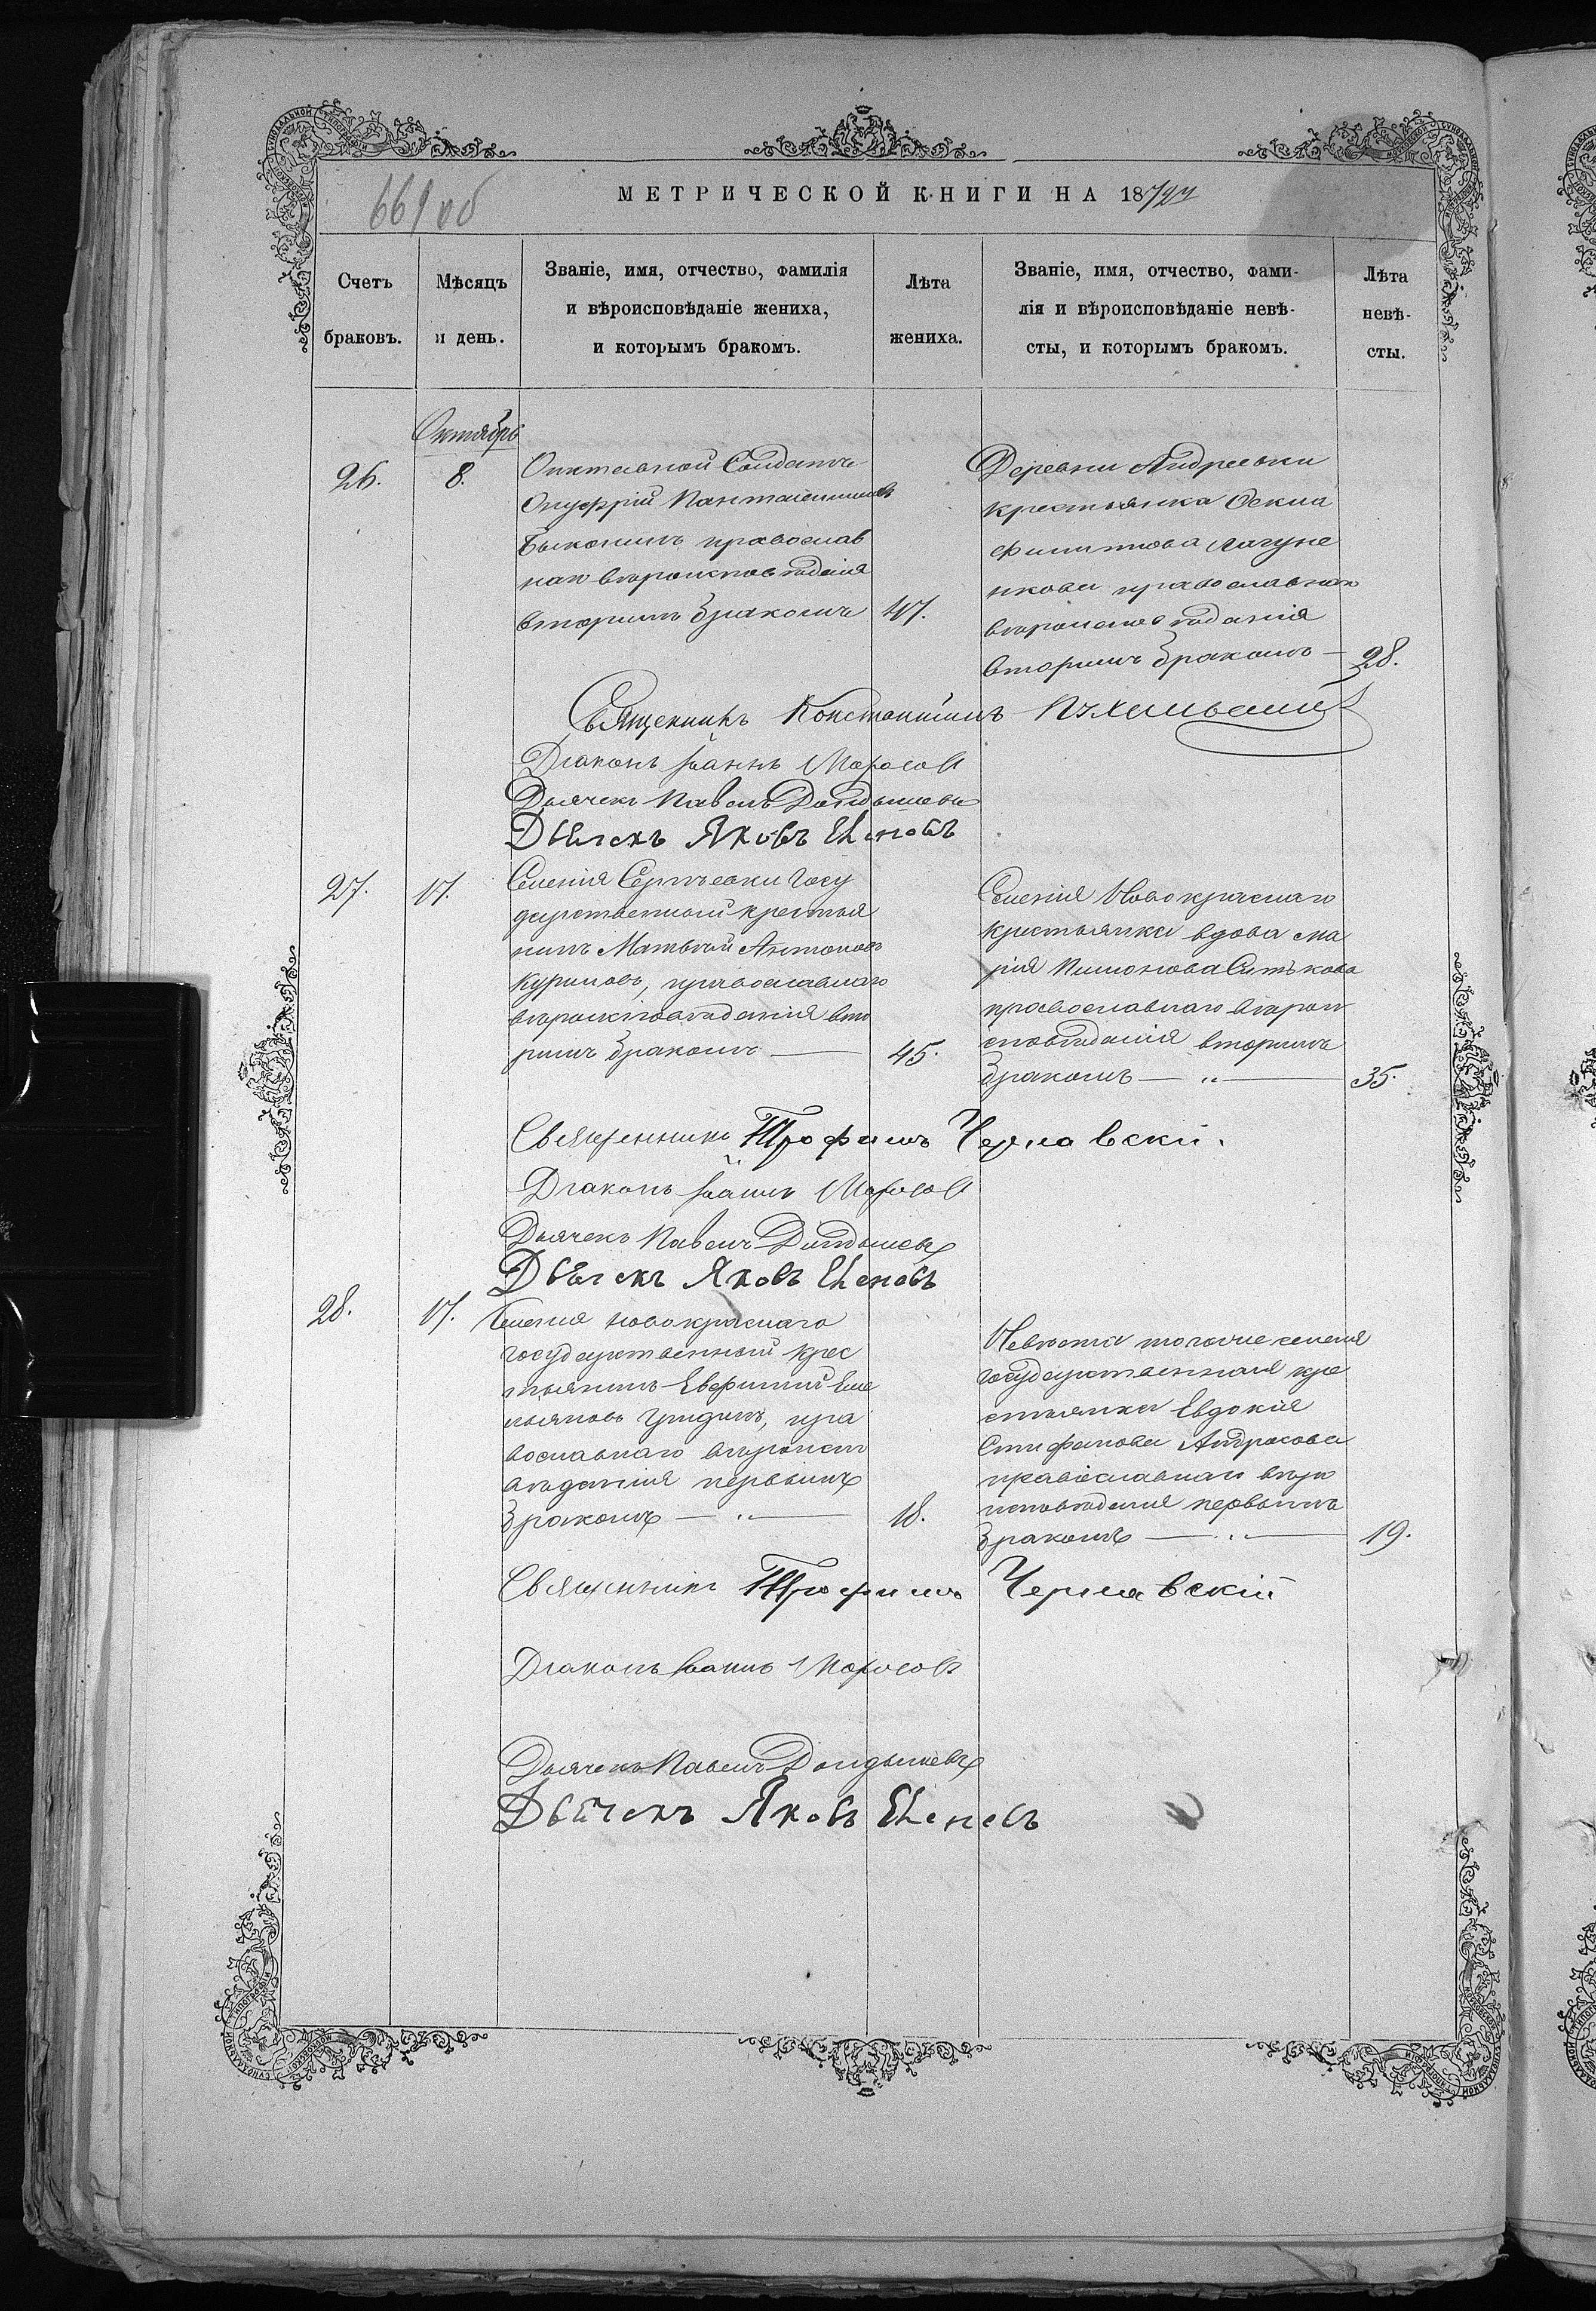 661 об
МЕТРИЧЕСКОЙ КНИГИ НА 187
Счетъ браковъ.
Мѣсяцъ и день.
Званіе, имя, отчество, фамилія
и вѣроисповѣданіе жениха,
и которымъ бракомъ.
Лѣта жениха.
Званіе, имя, отчество, фами-
лія и вѣроисповѣданіе невѣ-
сты, и которымъ бракомъ.
Лѣта невѣ-
сты.
Октябрь
26.
8.
Отставной Солдатъ
Онуфрій
православ
наго вѣроисповѣданія
вторымъ бракомъ
47.
Деревни Андреевки
крестьянка
Филиппова
нкова православнаго
вѣроисповѣданія
вторымъ бракомъ —
28.
Священникъ Константинъ
Діаконъ Іоаннъ Моросов
Дьячекъ Павелъ
Дьячекъ Яковъ
27.
17.
Селенія Сергѣевки Госу
дарственный крестья
нинъ Матвѣй Антоновъ
Куриловъ, православнаго
вѣроисповѣданія вто
рымъ бракомъ —
45.
Селенія Новокраснаго
крестьянка вдова Ма
рія Пимонова Ситькова
православнаго вѣрои
сповѣданія вторымъ
бракомъ — " —
35.
Священникъ Трофимъ Чернявскій.
Діаконъ Іоаннъ Моросов
Дьячекъ Павелъ
Дьячекъ Яковъ
28.
17.
Селенія Новокраснаго
государственный крес
тьянинъ Евфимій Еме
льяновъ Гридинъ, пра
вославнаго вѣроисп
овѣданія первымъ
бракомъ — " —
18.
Невѣста тогоже селенія
государственная кре
стьянка Евдокія
Стефанова Андросова
православнаго вѣро
исповѣданія первымъ
бракомъ — " —
19.
Священникъ Трофимъ Чернявскій
Діаконъ Іоаннъ Моросов
Дьячекъ Павелъ
Дьячекъ Яковъ